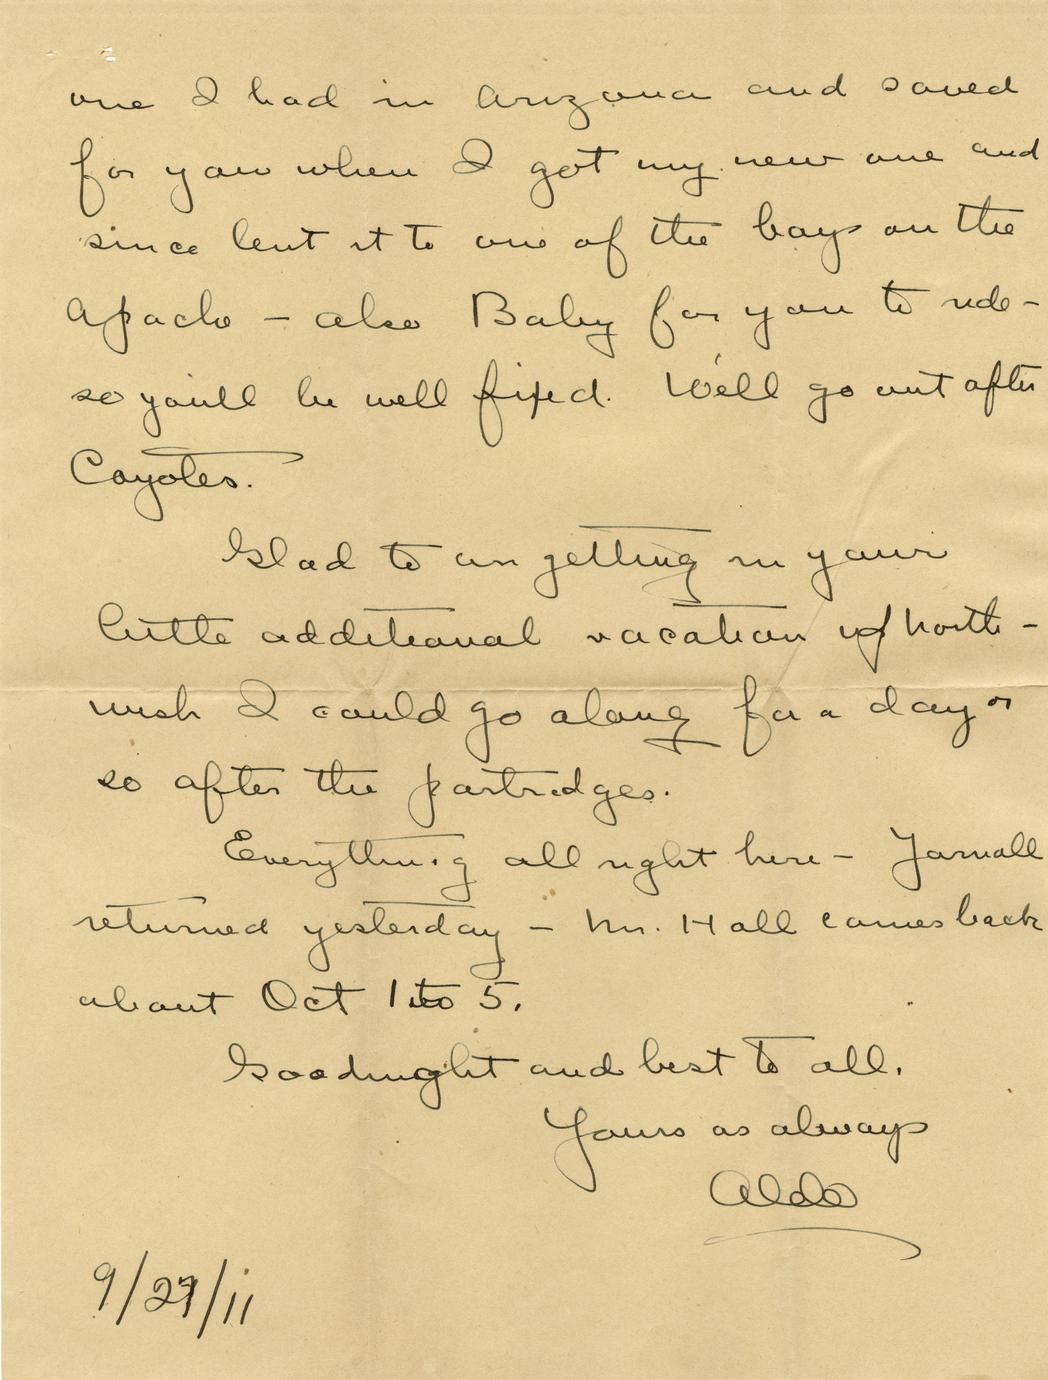 one I had in Arizona and saved
for you when I got my new one and
since lent it to one of the boys on the
Apache — also Baby for you to ride —
so you'll be well fixed. We'll go out after
Coyotes.
Glad to an getting in your
little additional vacation up North —
wish I could go along for a day or
so after the partridges.
Everything all right here — Yarnall
returned yesterday — Mr. Hall comes back
about Oct 1 to 5.
Goodnight and best to all.
Yours as always
Aldo
9/29/11